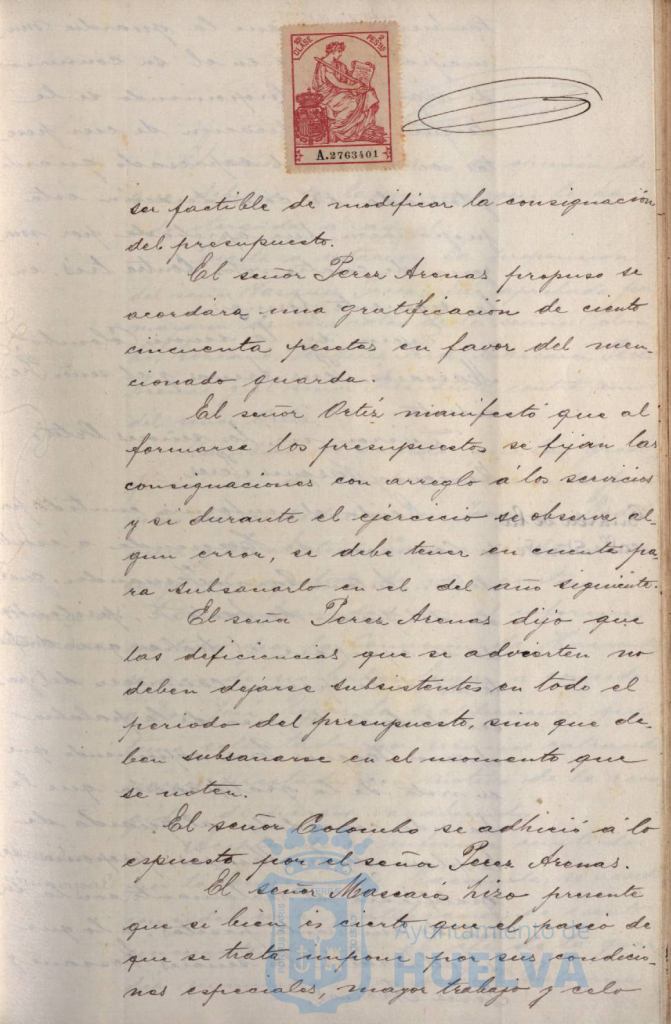 10ª CLASE
2 PESETAS
A.2763401
ser factible de modificar la consignación
del presupuesto.
El señor Perez Arenas propuso se
acordára una gratificación de ciento
cincuenta pesetas en favor del men-
cionado guarda.
El señor Ortíz manifestó que al
formarse los presupuestos se fijan las
consignaciones con arreglo á los servicios
y si durante el ejercicio se observa al-
gun error, se debe tener en cuenta pa-
ra subsanarlo en el del año siguiente.
El señor Perez Arenas dijo que
las deficiencias que se advierten no
deben dejarse subsistentes en todo el
periodo del presupuesto, sino que de-
ben subsanarse en el momento que
se noten.
El señor Colombo se adhirió á lo
espuesto por el señor Perez Arenas.
El señor Mascarós hizo presente
que si bien es cierto que el paseo de
que se trata impone por sus condicio-
nes especiales, mayor trabajo y celo
Ayuntamiento de
HUELVA